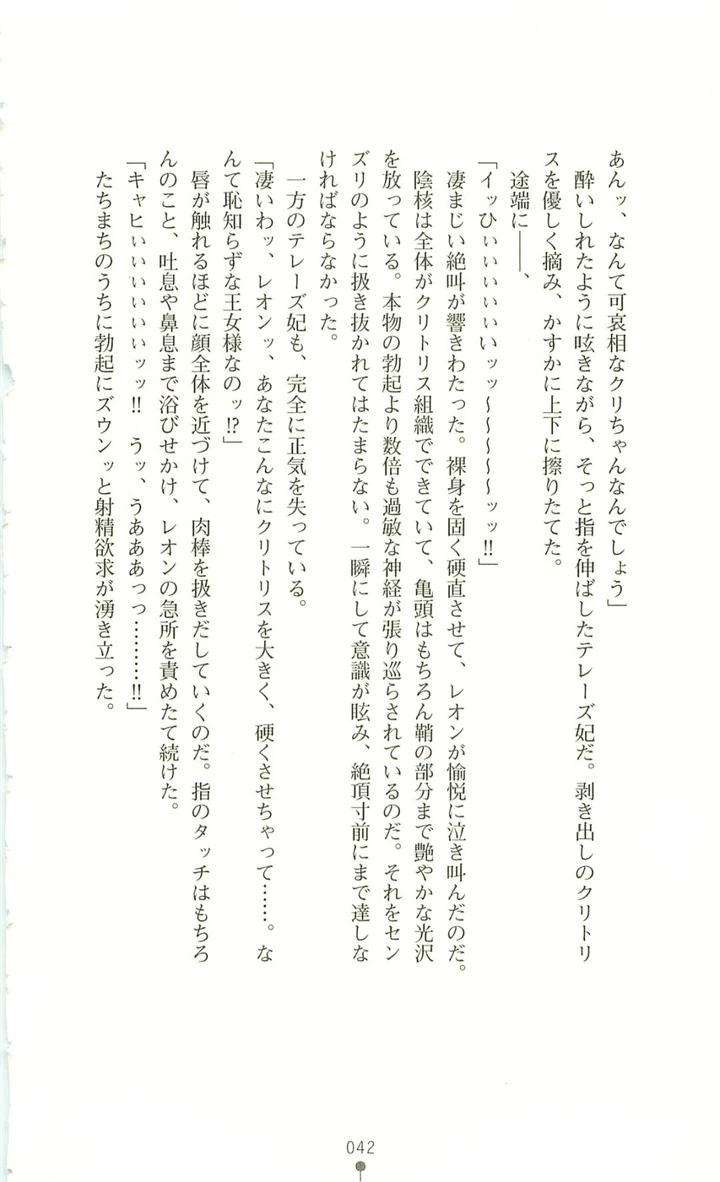 あんッ、なんて可哀相なクリちゃんなんでしょう」
　酔いしれたように呟きながら、そっと指を伸ばしたテレーズ妃だ。剥き出しのクリトリ
スを優しく摘み、かすかに上下に擦りたてた。
　途端に――、
「イッひぃぃぃぃぃぃいッッ～～～～～ッッ!!」
　凄まじい絶叫が響きわたった。裸身を固く硬直させて、レオンが愉悦に泣き叫んだのだ。
　陰核は全体がクリトリス組織でできていて、亀頭はもちろん鞘の部分まで艶やかな光沢
を放っている。本物の勃起より数倍も過敏な神経が張り巡らされているのだ。それをセン
ズリのように扱き抜かれてはたまらない。一瞬にして意識が眩み、絶頂寸前にまで達しな
ければならなかった。
　一方のテレーズ妃も、完全に正気を失っている。
「凄いわッ、レオンッ、あなたこんなにクリトリスを大きく、硬くさせちゃって……。な
んて恥知らずな王女様なのッ!?」
　唇が触れるほどに顔全体を近づけて、肉棒を扱きだしていくのだ。指のタッチはもちろ
んのこと、吐息や鼻息まで浴びせかけ、レオンの急所を責めたて続けた。
「キャヒぃぃぃぃぃぃッッ!!　うッ、うあああっっ………!!」
　たちまちのうちに勃起にズウンッと射精欲求が湧き立った。
042